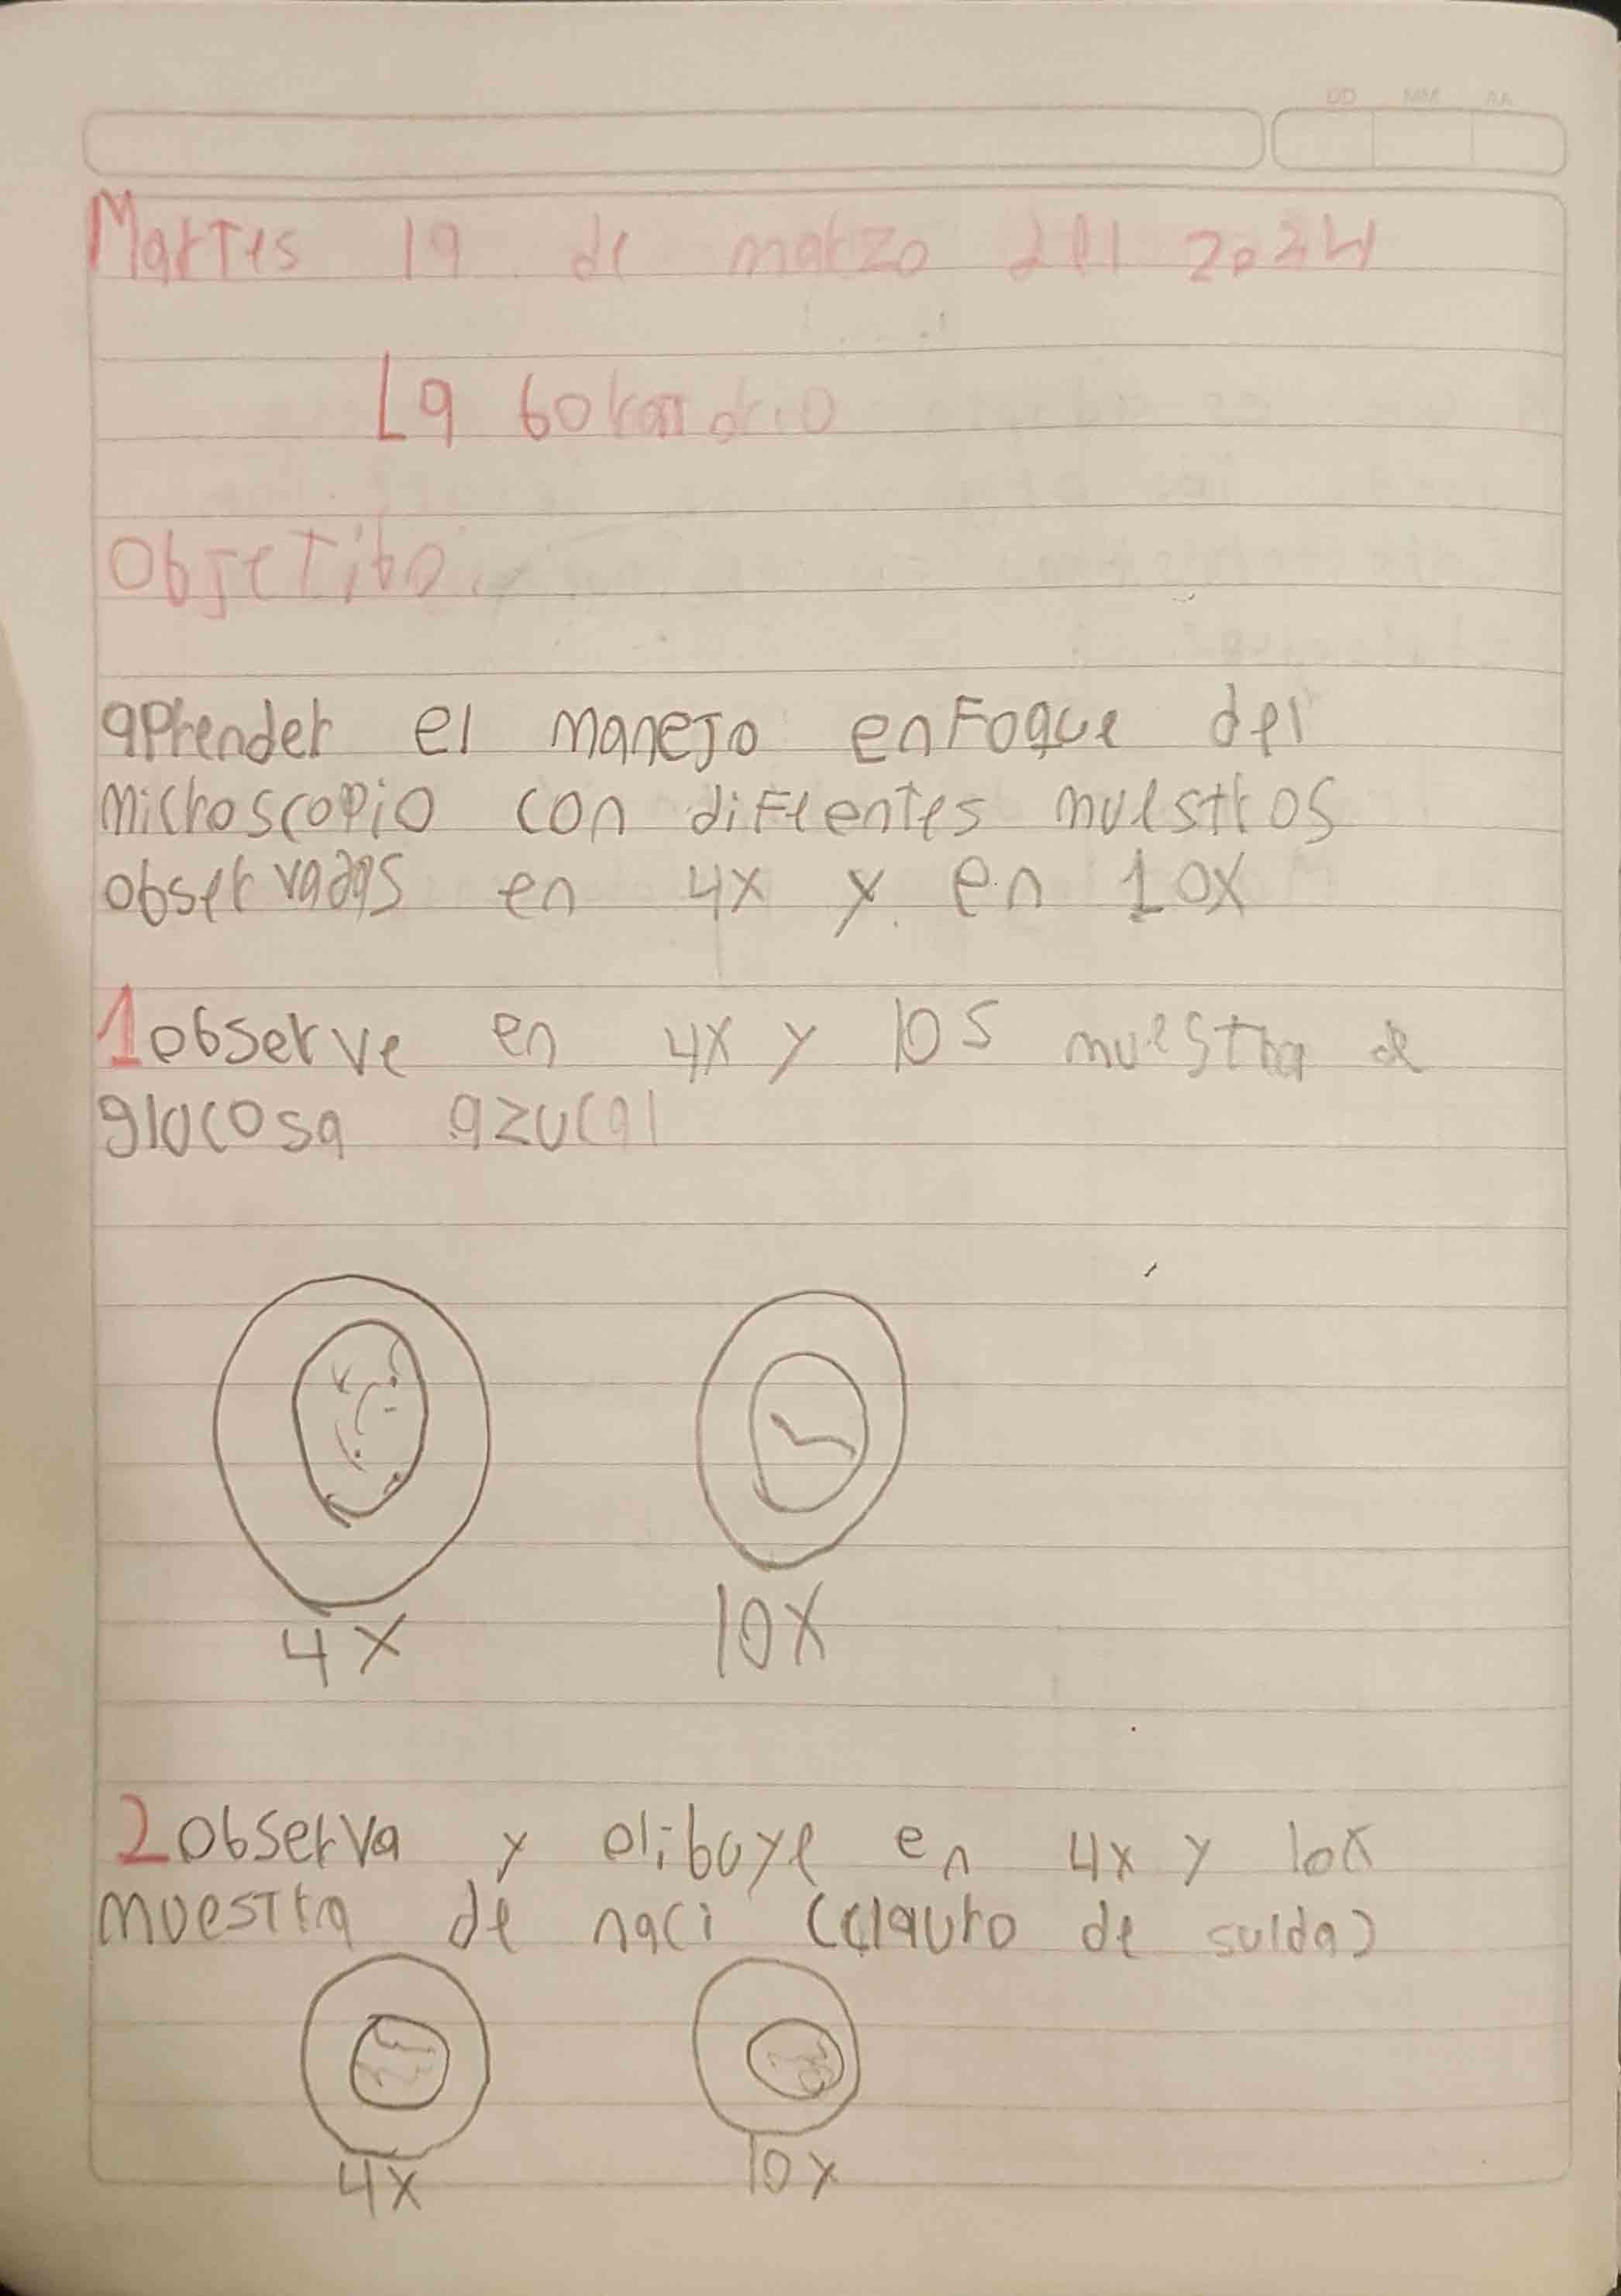 DD MM AA
Martes 19 de marzo del 2024
La borratorio
Objetibo
aprender el manejo enfoque del
microscopio con diflentes muestros
observadas en 4x y en 10x
1 observe en 4x y 10 s muestra de
glucosa azucal
4x 10x
2 observa y dibuye en 4x y 10x
muestra de naci (clauro de sulda)
4x 10x